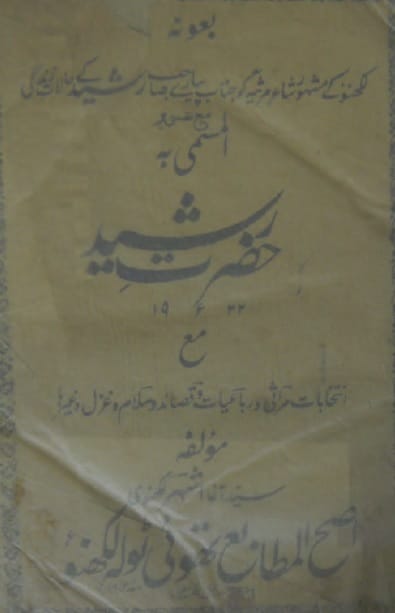 بعونہ
لکھنؤ کے مشہور شاعر مرثیہ گو جناب پیارے صاحب رشید کے حالات زندگی
مع تصویر
المسمیٰ بہ
حضرت رشید
۱۹۲۲ء
مع
انتخابات مراثی و رباعیات و قصائد و سلام و غزل وغیرہا
مؤلفہ
سید آغا اشہر لکھنوی
اصح المطابع تھوئی ٹولہ لکھنؤ